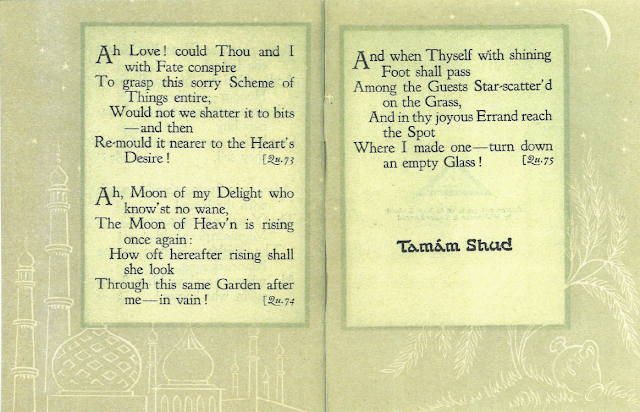 Ah Love! could Thou and I
with Fate conspire
To grasp this sorry Scheme of
Things entire,
Would not we shatter it to bits
—and then
Re-mould it nearer to the Heart's
Desire! [Qu. 73
Ah, Moon of my Delight who
know'st no wane,
The Moon of Heav'n is rising
once again:
How oft hereafter rising shall
she look
Through this same Garden after
me—in vain! [Qu. 74
And when Thyself with shining
Foot shall pass
Among the Guests Star-scatter'd
on the Grass,
And in thy joyous Errand reach
the Spot
Where I made one—turn down
an empty Glass! [Qu. 75
Tamám Shud